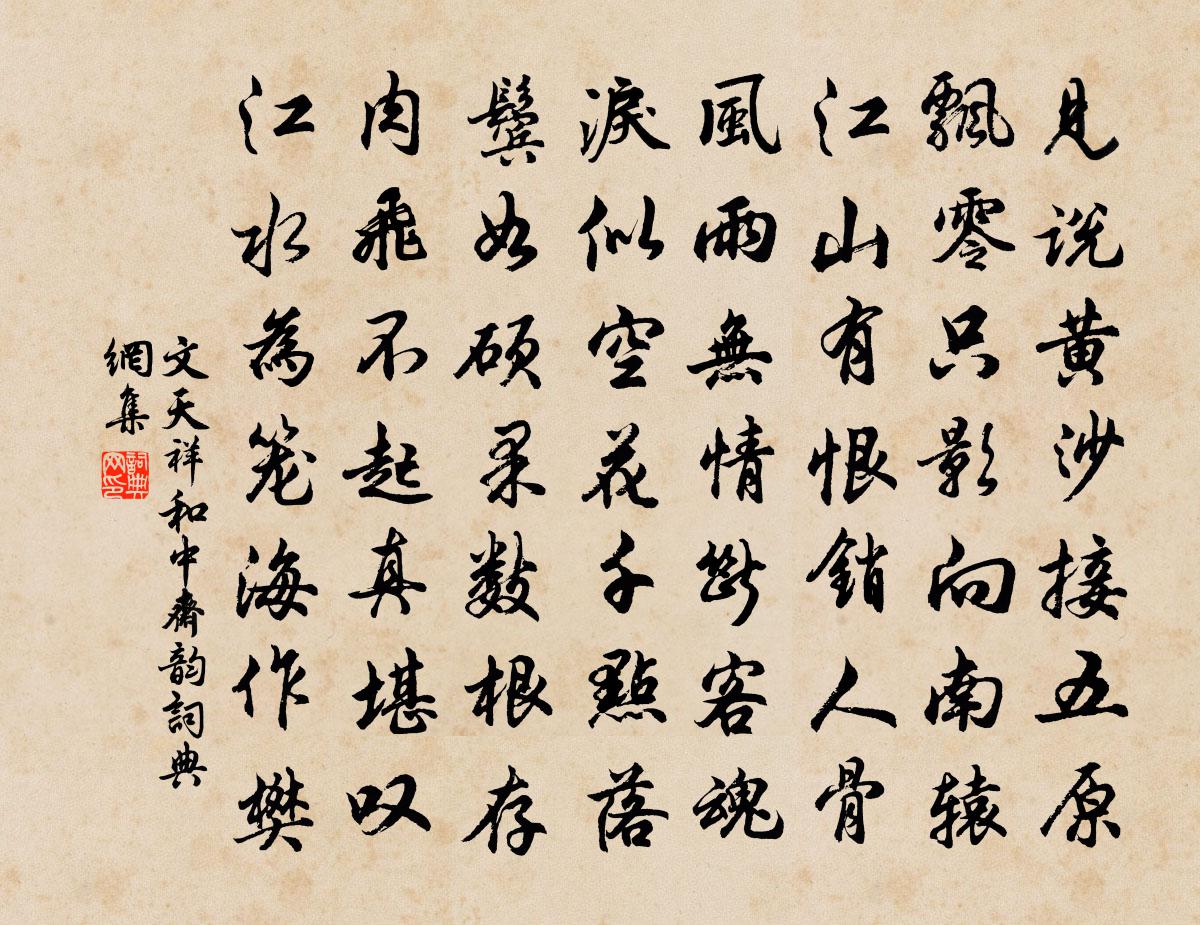 見说黄沙接五原
飄零只影向南辕
江山有恨銷人骨
風雨無情斷客魂
淚似空花千點落
鬓如硕果数根存
肉飛不起真堪叹
江水為笼海作樊
文天祥和中齋韵詞典
網集
詞典网印